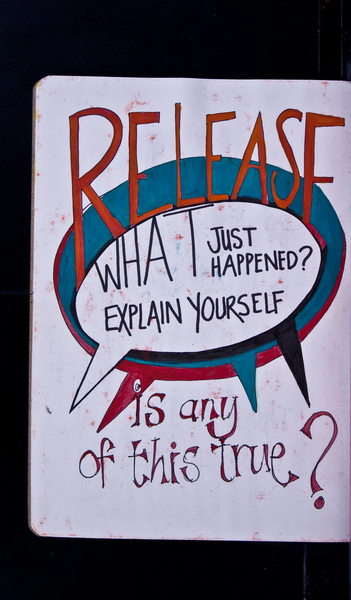 RELEASE
WHAT JUST
HAPPENED?
EXPLAIN YOURSELF
is any
of this true?